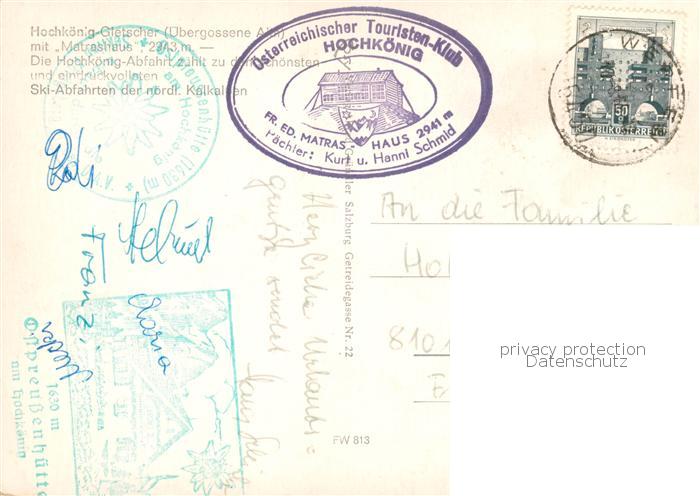 Hochkönig-Gletscher (Übergossene Alm)
mit „Matrashaus", 2943 m. —
Die Hochkönig-Abfahrt zählt zu den schönsten
und eindruckvollsten
Ski-Abfahrten der nördl. Kalkalpen
Österreichischer Touristen-Klub
HOCHKÖNIG
FR. ED. MATRAS HAUS 2941 m
Pächter: Kurt u. Hannl Schmid
50
REPUBLIK ÖSTERREICH
Ostpreussenhütte (1630 m)
am Hochkönig
Rodi
Helmut
Franzi
Maria
Herzliche Urlaubs-
grüße sendet
Salzburg, Getreidegasse Nr. 22
An die Familie
Ho
8101
FW 813
Ostpreußenhütte
1630 m
am Hochkönig
privacy protection
Datenschutz